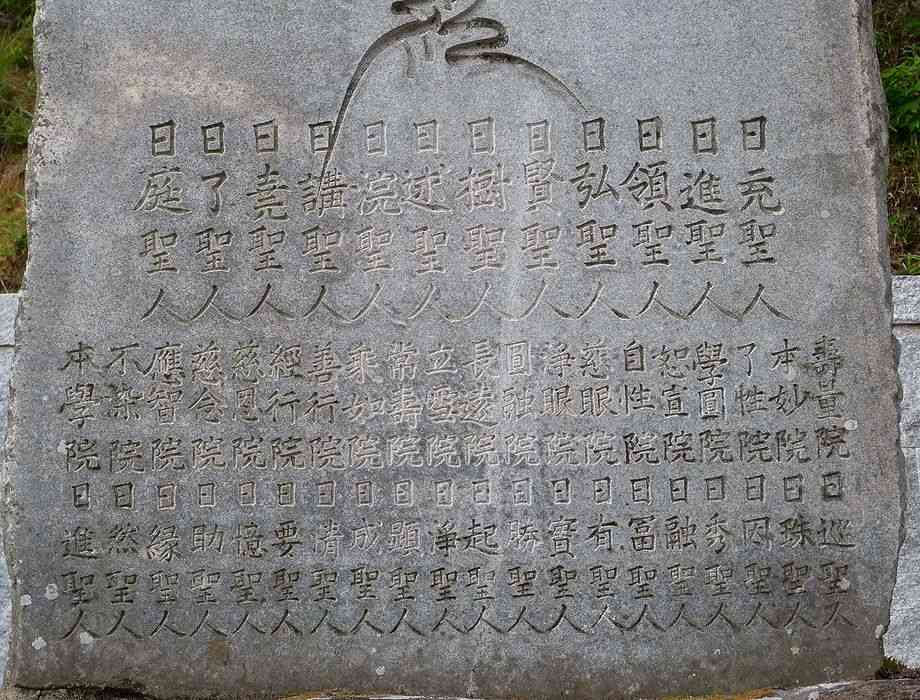 日充聖人
日進聖人
日領聖人
日弘聖人
日賢聖人
日樹聖人
日述聖人
日浣聖人
日講聖人
日尭聖人
日了聖人
日庭聖人
壽量院日巡聖人
本妙院日珠聖人
了性院日因聖人
學圓院日秀聖人
恕宣院日融聖人
自性院日冨聖人
慈眼院日有聖人
淨眼院日實聖人
圓融院日勝聖人
長遠院日起聖人
立雪院日淨聖人
常壽院日顕聖人
乘如院日成聖人
善行院日清聖人
經行院日要聖人
慈恩院日憶聖人
慈念院日助聖人
應智院日縁聖人
不染院日然聖人
本學院日進聖人